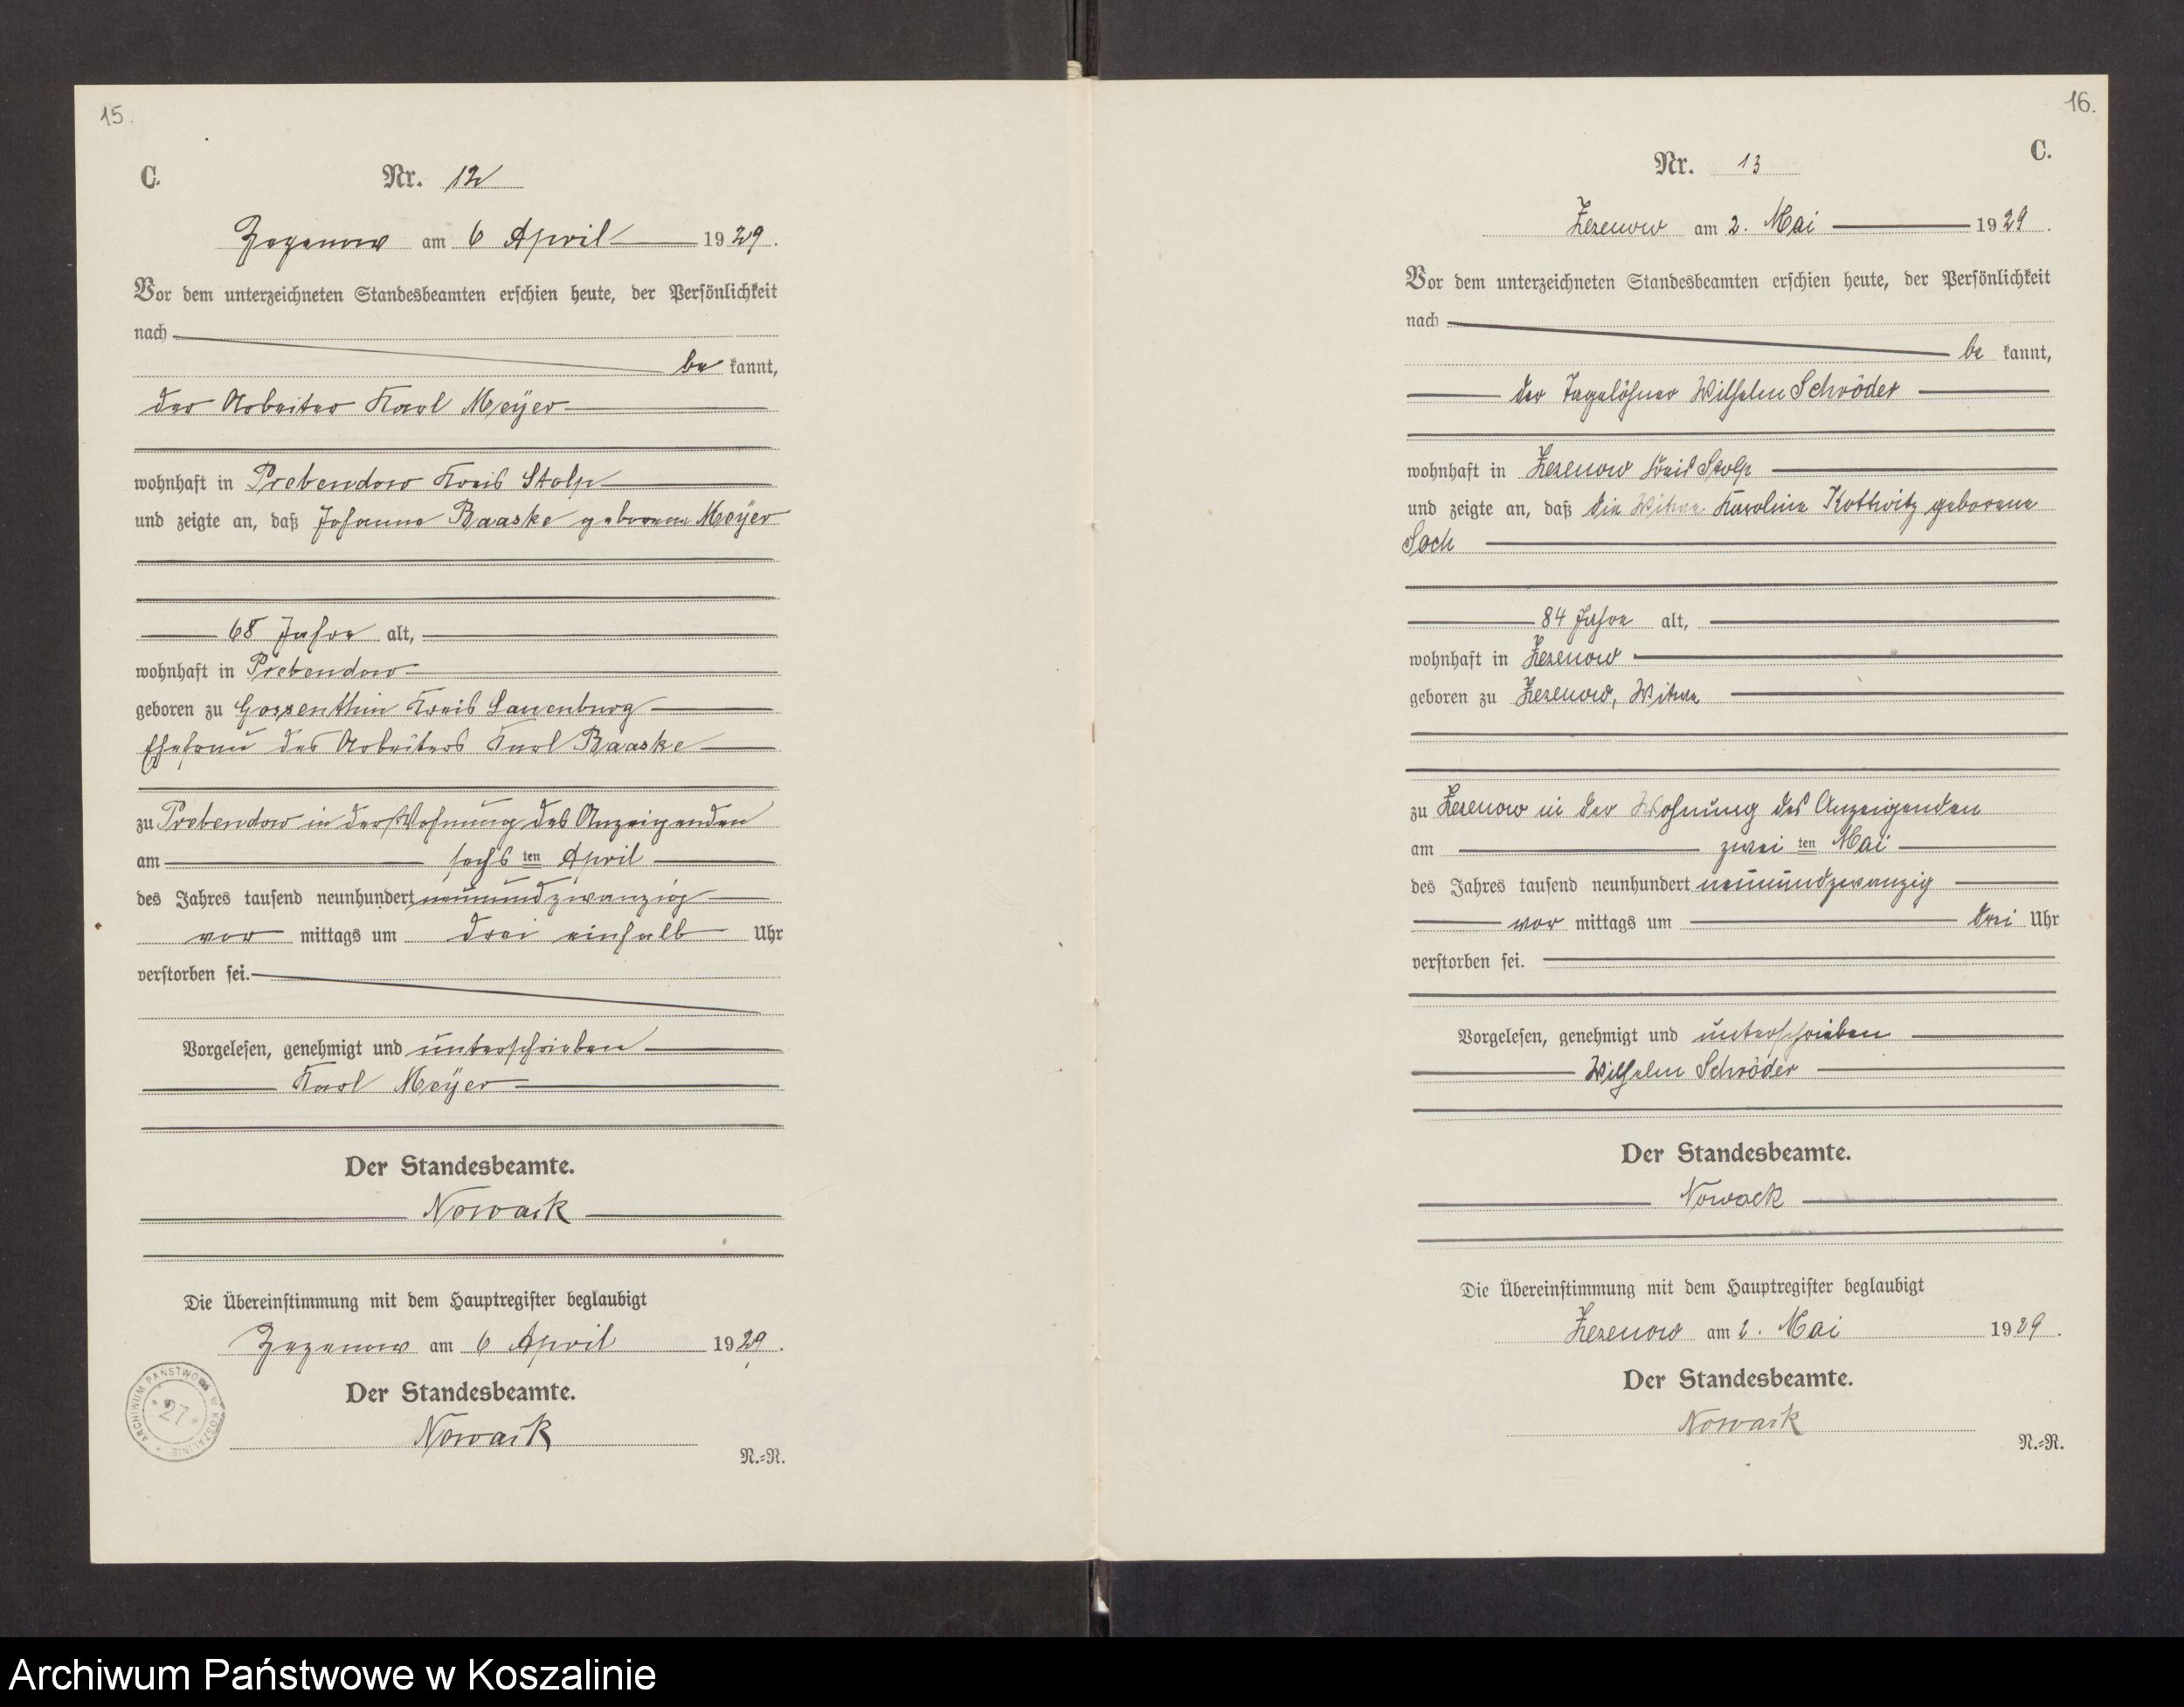 15.
C.
Nr. 12
Zezenow am 6 April 1929.
Vor dem unterzeichneten Standesbeamten erschien heute, der Persönlichkeit
nach
be kannt,
der Arbeiter Karl Meyer
wohnhaft in Prebendow Kreis Stolp
und zeigte an, daß Johanna Baaske geborene Meyer
68 Jahre alt,
wohnhaft in Prebendow
geboren zu Gossenthin Kreis Lauenburg
Ehefrau des Arbeiters Karl Baaske
zu Prebendow in der Wohnung des Anzeigenden
am sechsten April
des Jahres tausend neunhundert neunundzwanzig
vor mittags um drei einhalb Uhr
verstorben sei.
Vorgelesen, genehmigt und unterschrieben
Karl Meyer
Der Standesbeamte.
Nowack
Die Übereinstimmung mit dem Hauptregister beglaubigt
Zezenow am 6 April 1929.
Der Standesbeamte.
Nowack
N.=R.
ARCHIWUM PAŃSTWOWE W KOSZALINIE
27
16.
C.
Nr. 13
Zezenow am 2. Mai 1929.
Vor dem unterzeichneten Standesbeamten erschien heute, der Persönlichkeit
nach
be kannt,
der Tagelöhner Wilhelm Schröder
wohnhaft in Zezenow Kreis Stolp
und zeigte an, daß die Witwe Karoline Kottwitz geborene
Soch
84 Jahre alt,
wohnhaft in Zezenow
geboren zu Zezenow, Witwe
zu Zezenow in der Wohnung des Anzeigenden
am zweiten Mai
des Jahres tausend neunhundert neunundzwanzig
vor mittags um drei Uhr
verstorben sei.
Vorgelesen, genehmigt und unterschrieben
Wilhelm Schröder
Der Standesbeamte.
Nowack
Die Übereinstimmung mit dem Hauptregister beglaubigt
Zezenow am 2. Mai 1929.
Der Standesbeamte.
Nowack
N.=R.
Archiwum Państwowe w Koszalinie